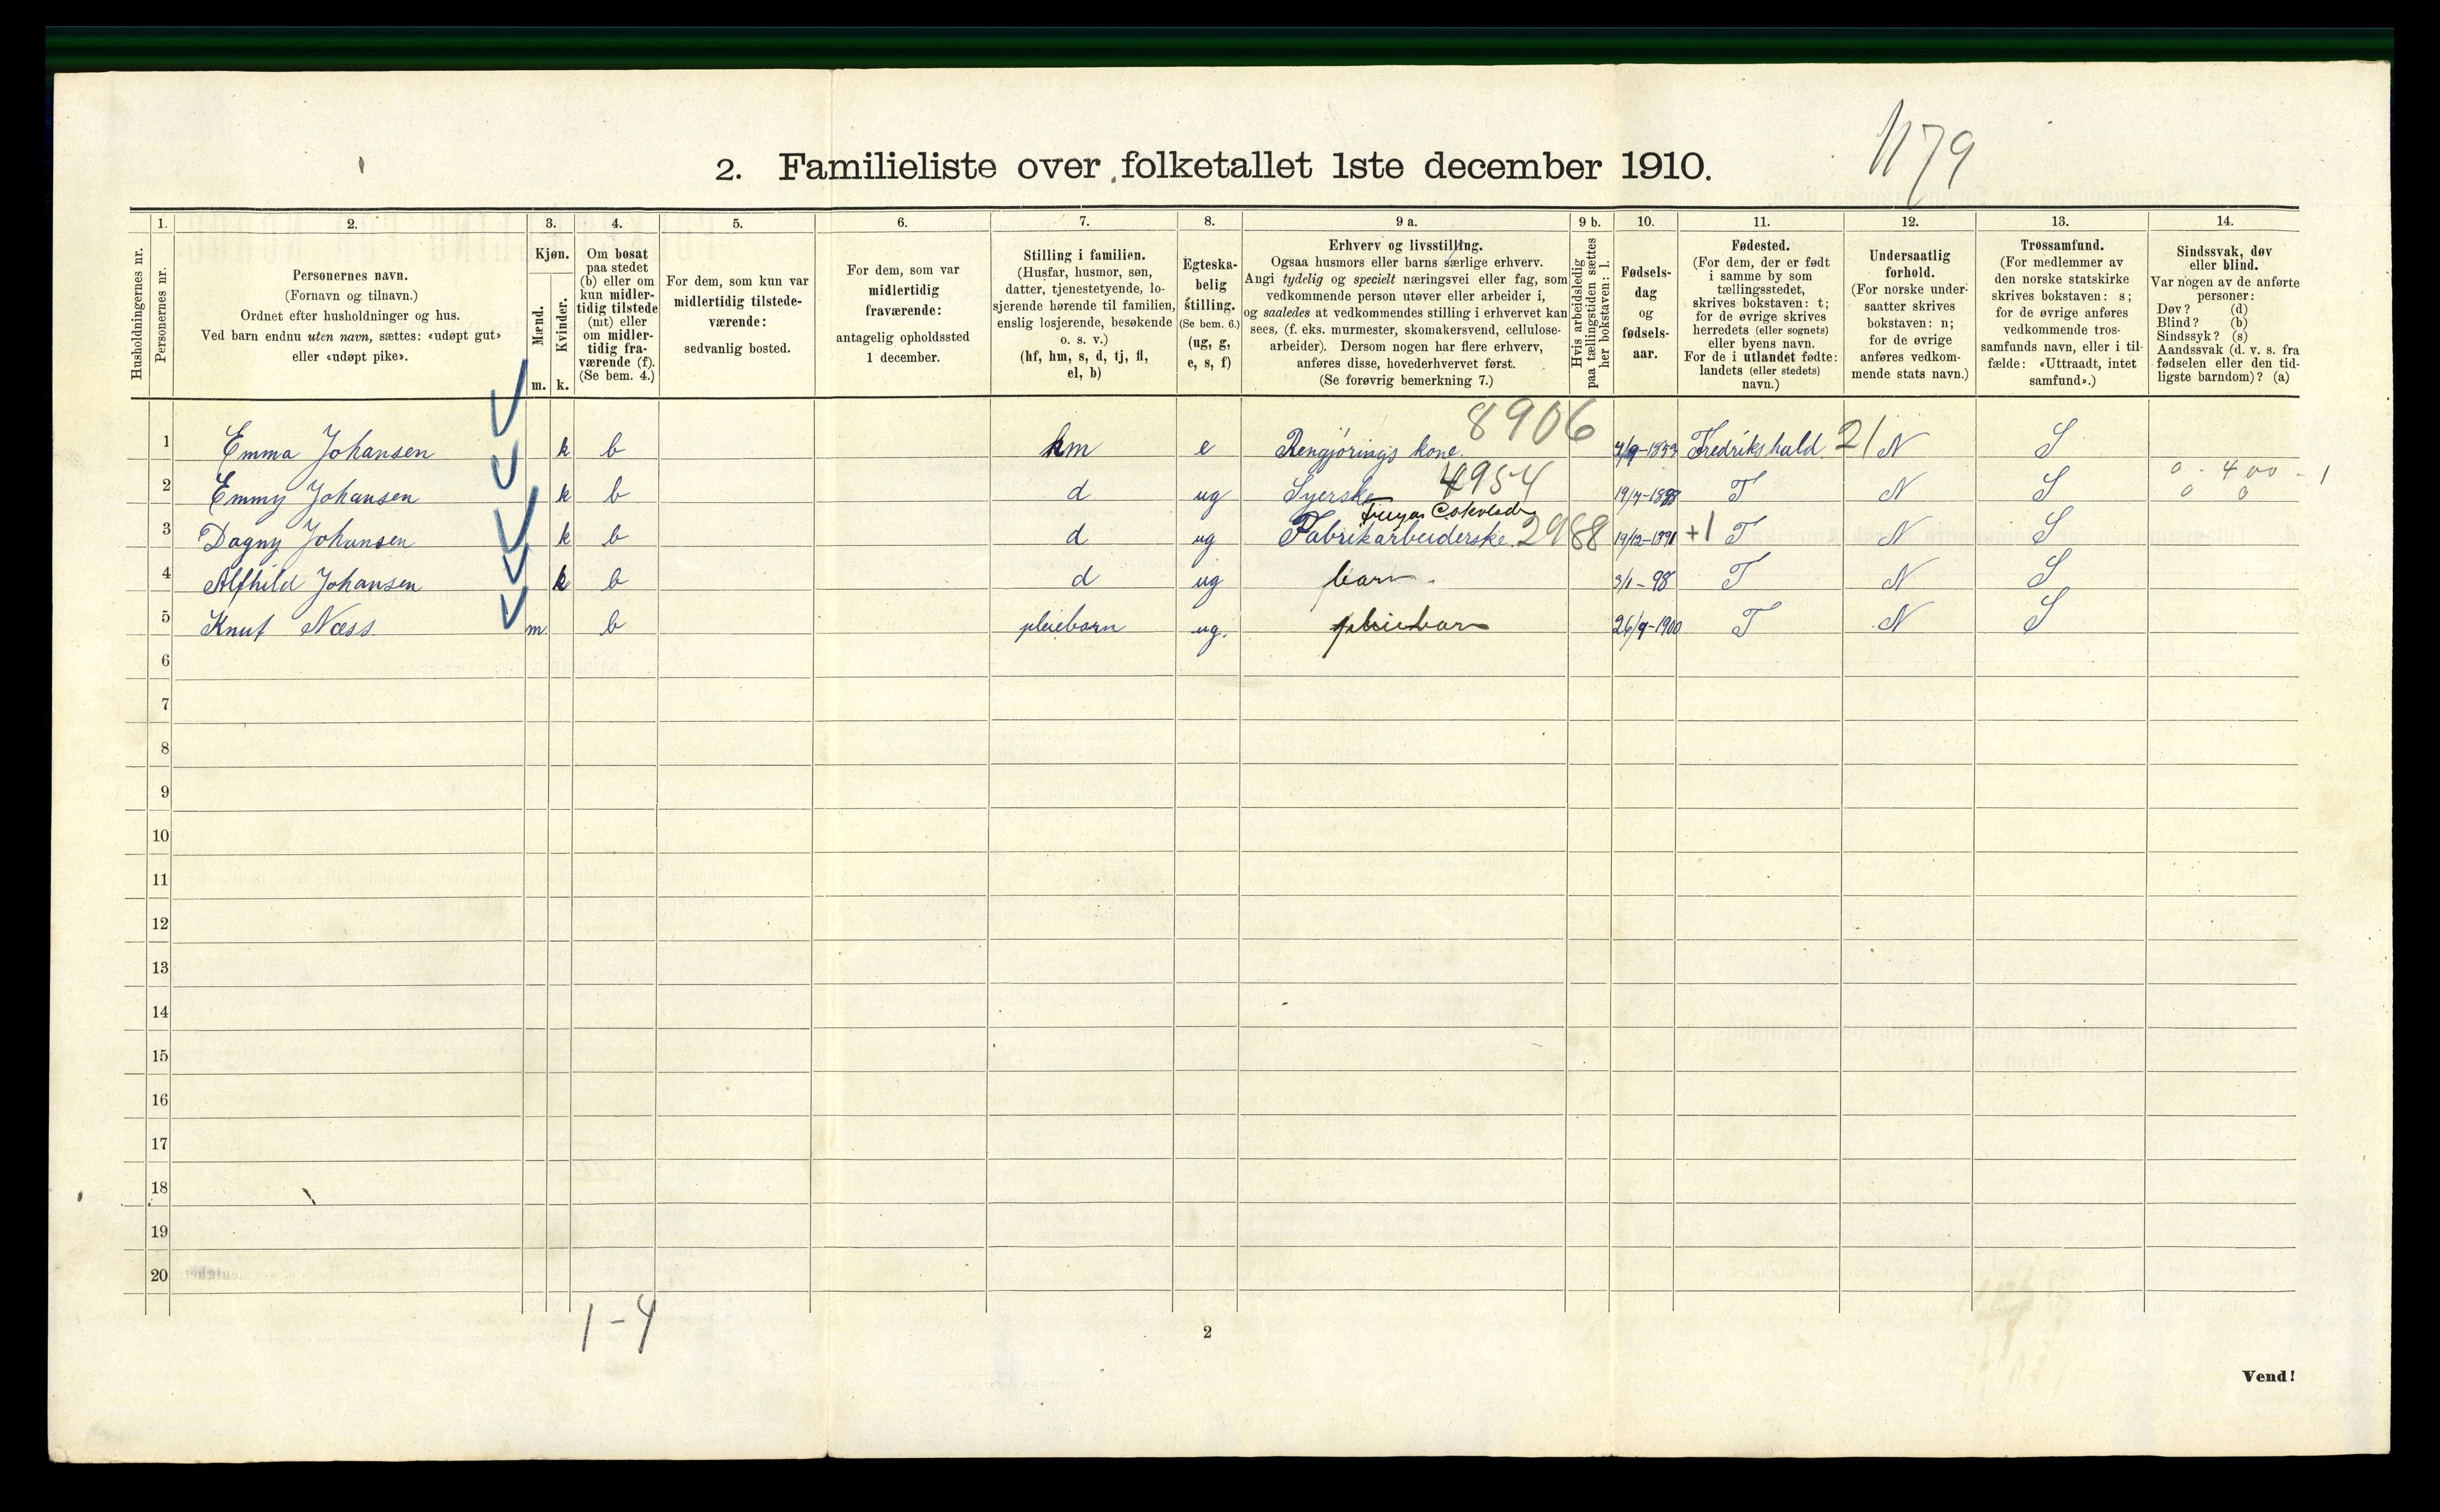 1179
2. Familieliste over folketallet 1ste december 1910.
1. 2. 3. 4. 5. 6. 7. 8. 9 a. 9 b. 10. 11. 12. 13. 14.
Husholdningernes nr.
Personernes nr.
Personernes navn.
(Fornavn og tilnavn.)
Ordnet efter husholdninger og hus.
Ved barn endnu uten navn, sættes: «udøpt gut»
eller «udøpt pike».
Kjøn.
Mænd.
m.
Kvinder.
k.
Om bosat
paa stedet
(b) eller om
kun midler-
tidig tilstede
(mt) eller
om midler-
tidig fra-
værende (f).
(Se bem. 4.)
For dem, som kun var
midlertidig tilstede-
værende:
sedvanlig bosted.
For dem, som var
midlertidig
fraværende:
antagelig opholdssted
1 december.
Stilling i familien.
(Husfar, husmor, søn,
datter, tjenestetyende, lo-
sjerende hørende til familien,
enslig losjerende, besøkende
o. s. v.)
(hf, hm, s, d, tj, fl,
el, b)
Egteska-
belig
stilling.
(Se bem. 6.)
(ug, g,
e, s, f)
Erhverv og livsstilling.
Ogsaa husmors eller barns særlige erhverv.
Angi tydelig og specielt næringsvei eller fag, som
vedkommende person utøver eller arbeider i,
og saaledes at vedkommendes stilling i erhvervet kan
sees, (f. eks. murmester, skomakersvend, cellulose-
arbeider). Dersom nogen har flere erhverv,
anføres disse, hovederhvervet først.
(Se forøvrig bemerkning 7.)
Hvis arbeidsledig
paa tællingstiden sættes
her bokstaven: l.
Fødsels-
dag
og
fødsels-
aar.
Fødested.
(For dem, der er født
i samme by som
tællingsstedet,
skrives bokstaven: t;
for de øvrige skrives
herredets (eller sognets)
eller byens navn.
For de i utlandet fødte:
landets (eller stedets)
navn.)
Undersaatlig
forhold.
(For norske under-
saatter skrives
bokstaven: n;
for de øvrige
anføres vedkom-
mende stats navn.)
Trossamfund.
(For medlemmer av
den norske statskirke
skrives bokstaven: s;
for de øvrige anføres
vedkommende tros-
samfunds navn, eller i til-
fælde: «Uttraadt, intet
samfund».)
Sindssvak, døv
eller blind.
Var nogen av de anførte
personer:
Døv? (d)
Blind? (b)
Sindssyk? (s)
Aandssvak (d. v. s. fra
fødselen eller den tid-
ligste barndom)? (a)
8906
1 Emma Johansen k b hm e Rengjørings kone. Fredrikshald. 21 N S
4954 0 - 400 - 1
2 Emmy Johansen k b d ug Syerske T N S 0 0
3 Dagny Johansen k b d ug Fabrikarbeiderske. 2988 19/12-1891 +1 T N S
4 Alfhild Johansen k b d ug barn 3/1-98 T N S
5 Knut Næss m. b pleiebarn ug. pleiebarn 26/9-1900 T N S
6
7
8
9
10
11
12
13
14
15
16
17
18
19
20
1-4
2
Vend!